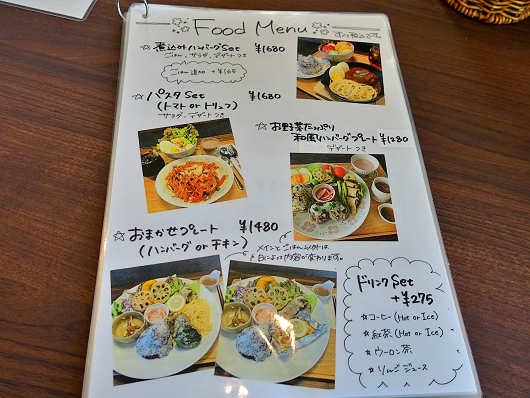 Food Menu
すべて税込です。
☆ 煮込みハンバーグSet ¥1680
ごはん、サラダ、デザートつき
ごはん追加 +¥165
☆ パスタSet ¥1680
(トマト or トリュフ)
サラダ、デザートつき
☆ お野菜たっぷり
和風ハンバーグプレート ¥1280
デザートつき
☆ おまかせプレート ¥1480
(ハンバーグ or チキン)
メインとごはん以外は
日によって内容が変わります。
ドリンクSet
+¥275
☆コーヒー (Hot or Ice)
☆紅茶 (Hot or Ice)
☆ウーロン茶
☆りんごジュース